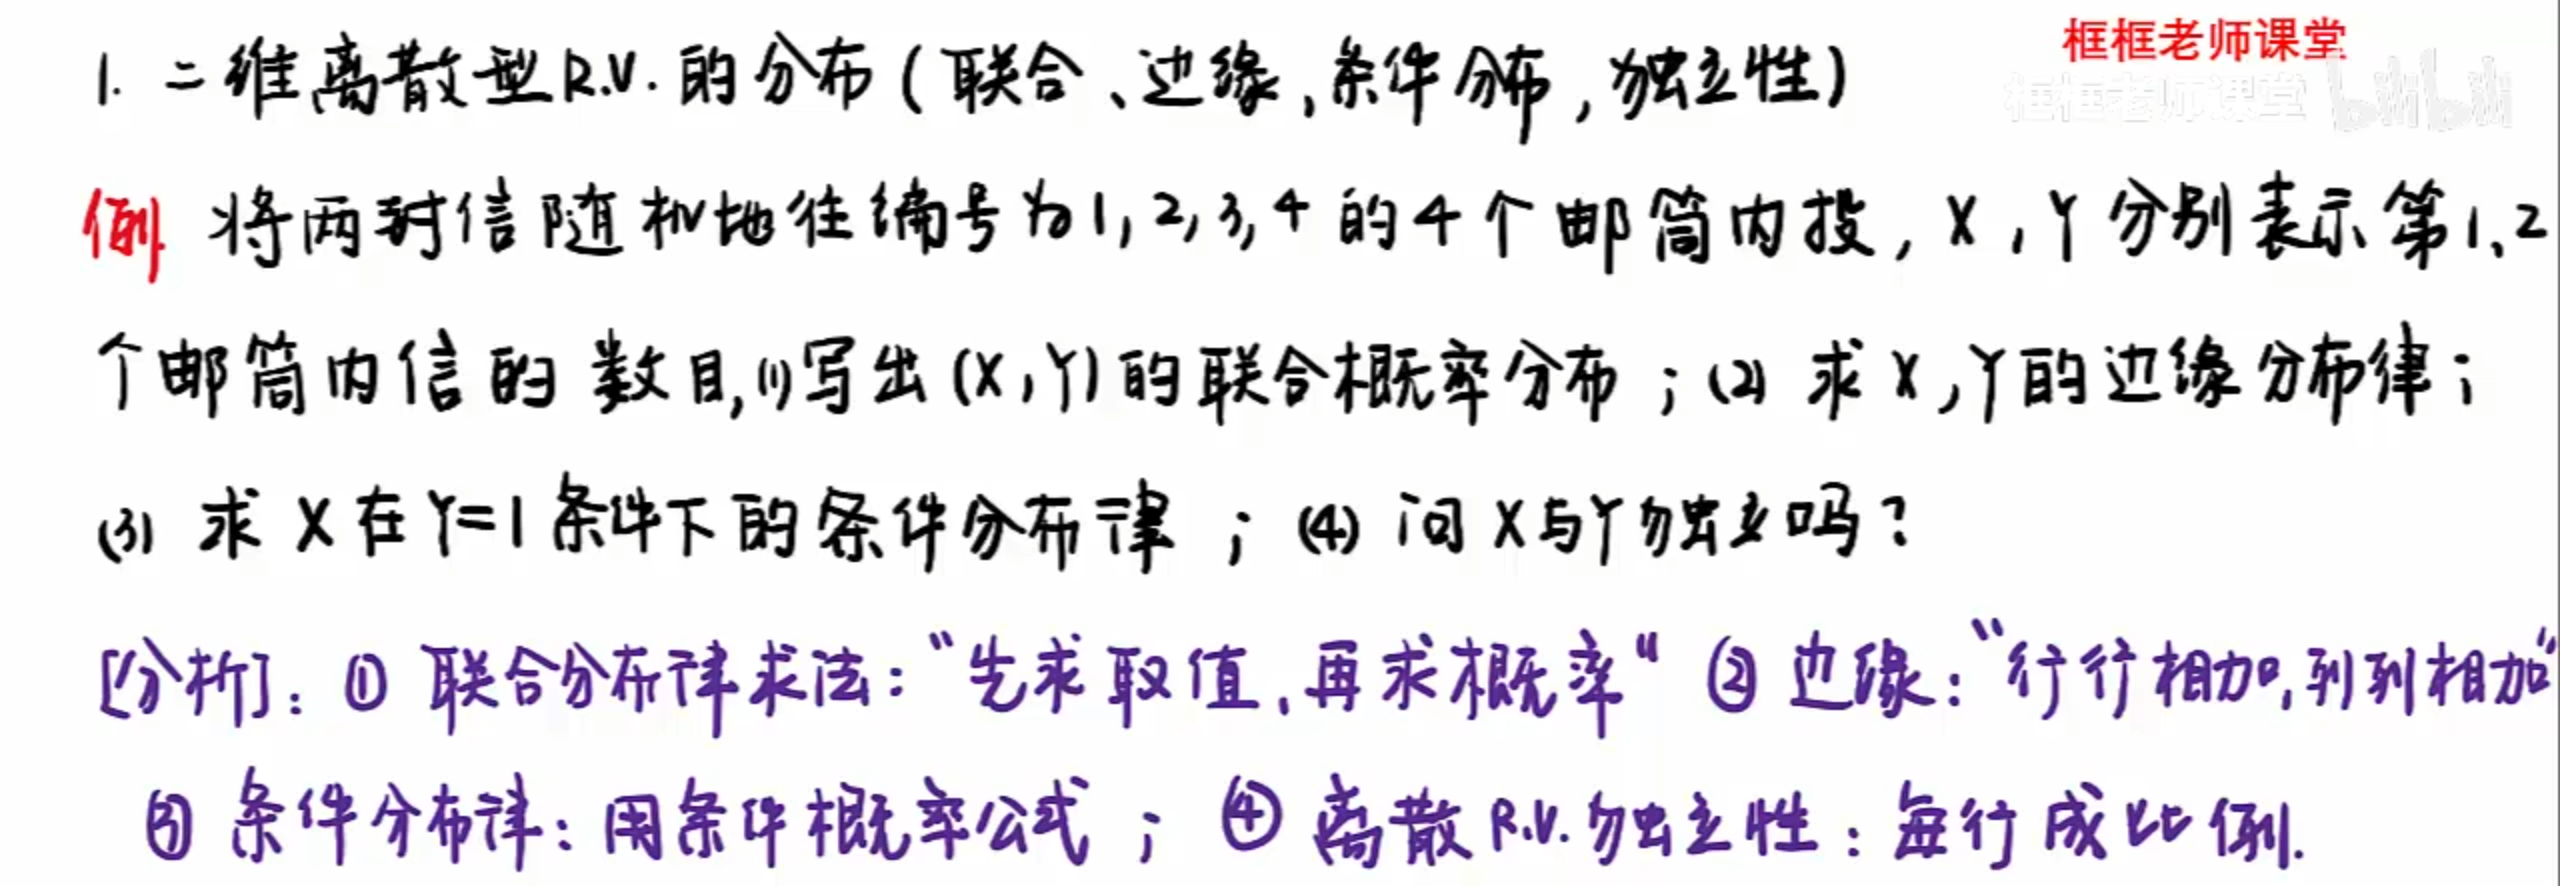 框框老师课堂
框框老师课堂 bilibili
1. 二维离散型R.V.的分布(联合、边缘,条件分布,独立性)
例 将两封信随机地往编号为1,2,3,4的4个邮筒内投,X,Y分别表示第1、2
个邮筒内信的数目,(1)写出(X,Y)的联合概率分布;(2)求X,Y的边缘分布律;
(3)求X在Y=1条件下的条件分布律;(4)问X与Y独立吗?
[分析]:①联合分布律求法:“先求取值,再求概率“ ②边缘:“行行相加,列列相加“
③条件分布律:用条件概率公式;④离散R.V.独立性:每行成比例.